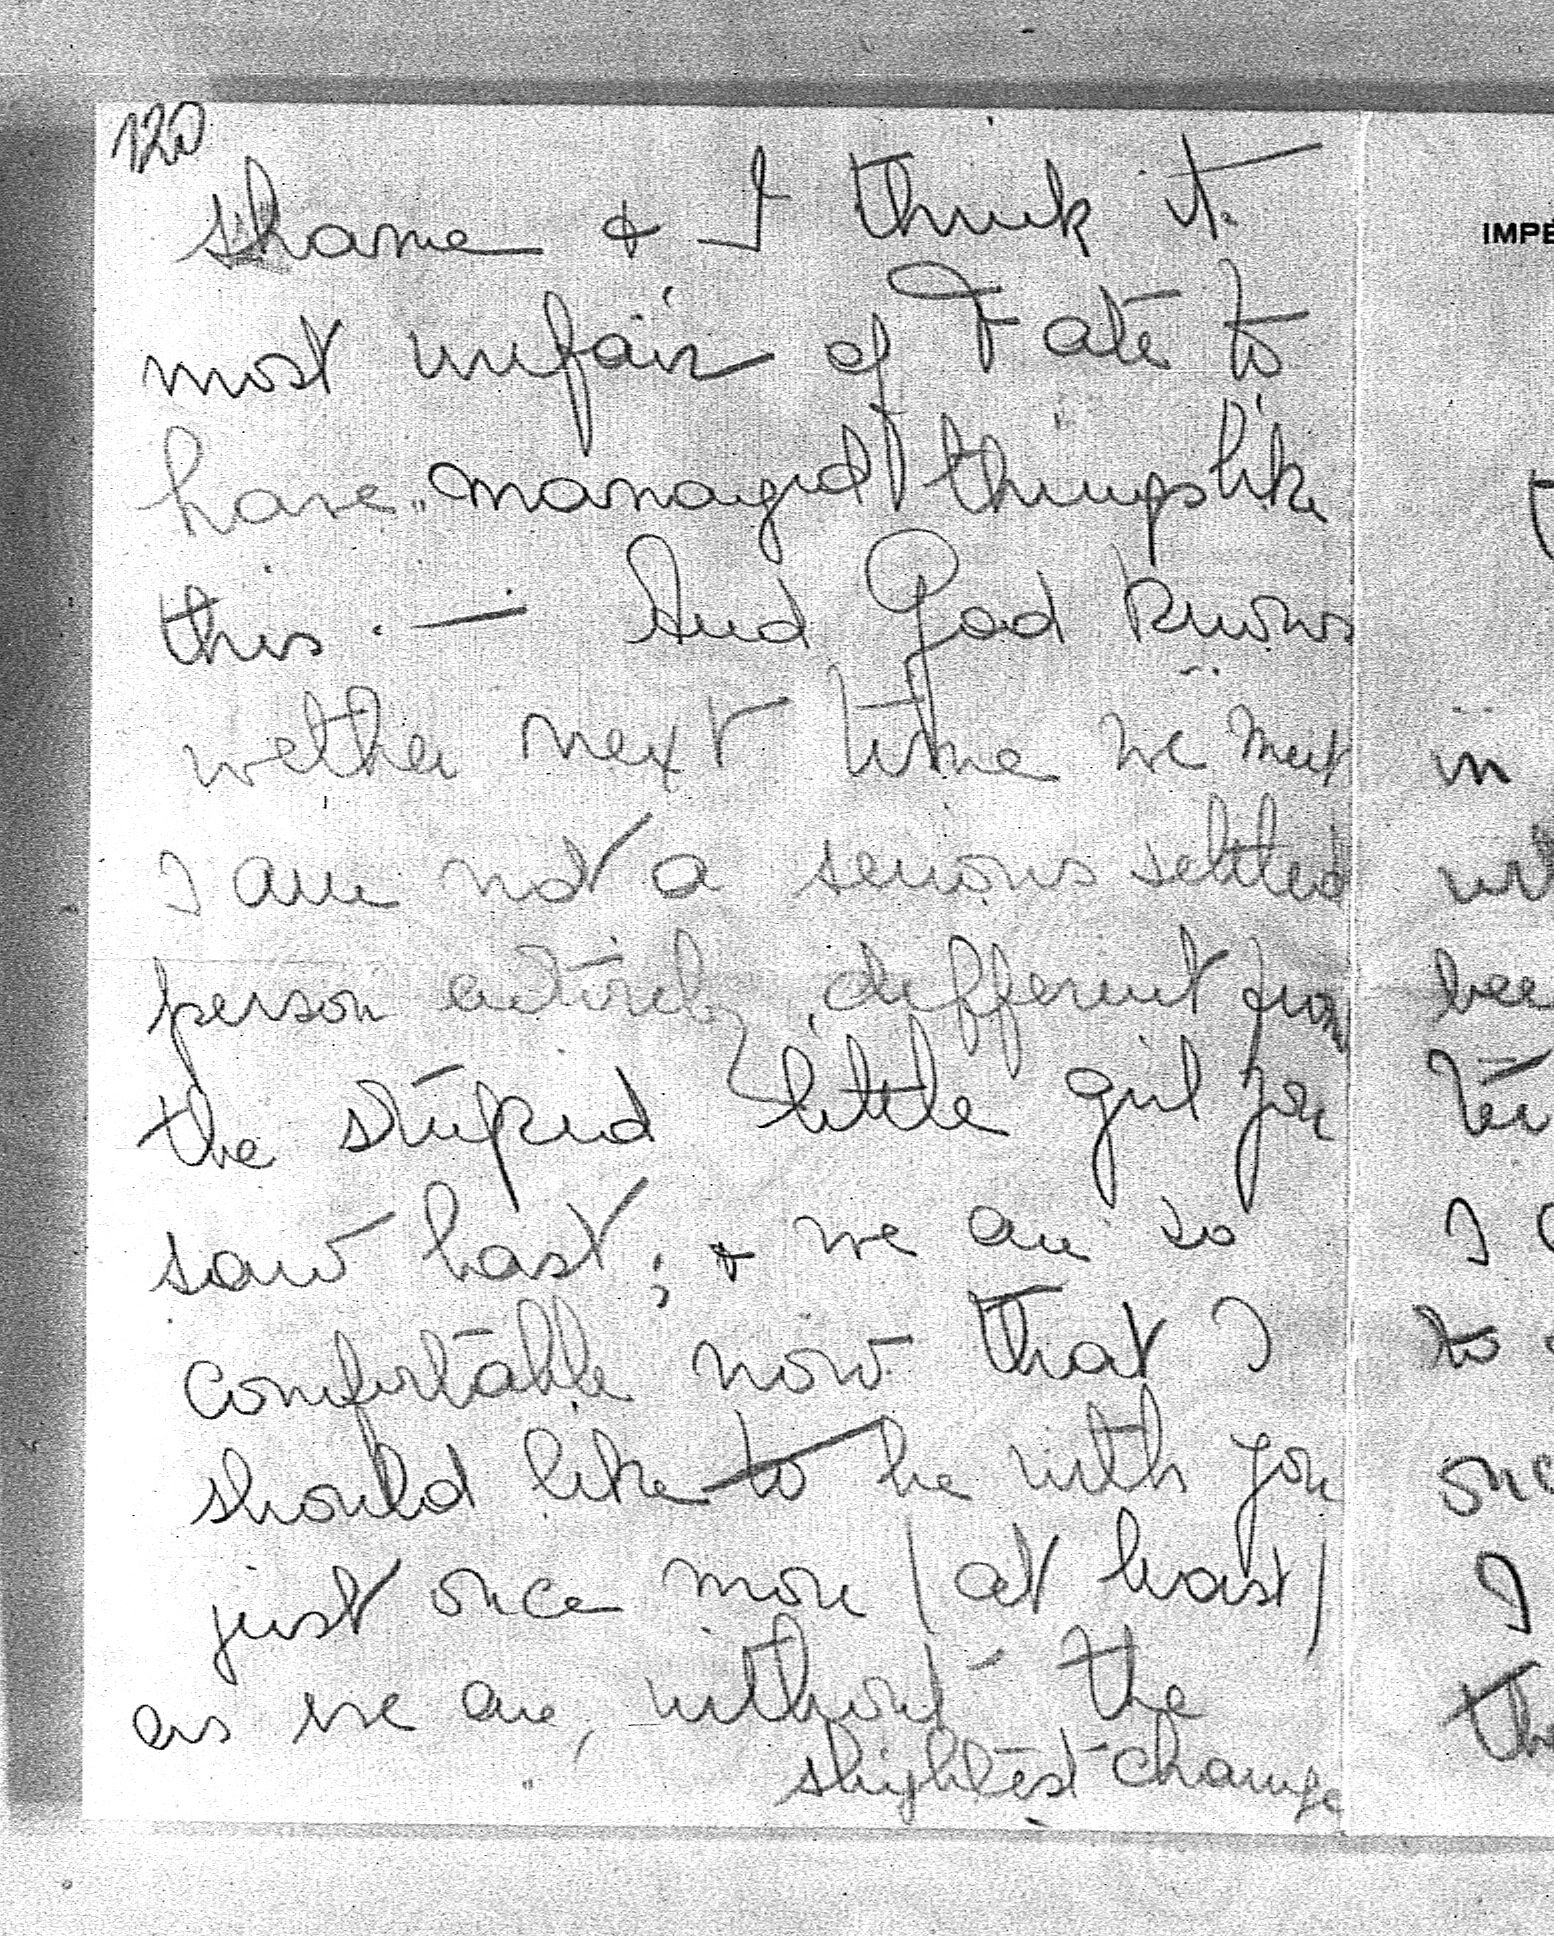 120
shame & I think it
most unfair of Fate to
have managed things like
this. — And God knows
wether next time we meet
I am not a serious settled
person entirely different from
the stupid little girl you
saw last; & we are so
comfortable now that I
should like to be with you
just once more (at least)
as we are, without the
slightest change
IMPÉ
in
I
to
I